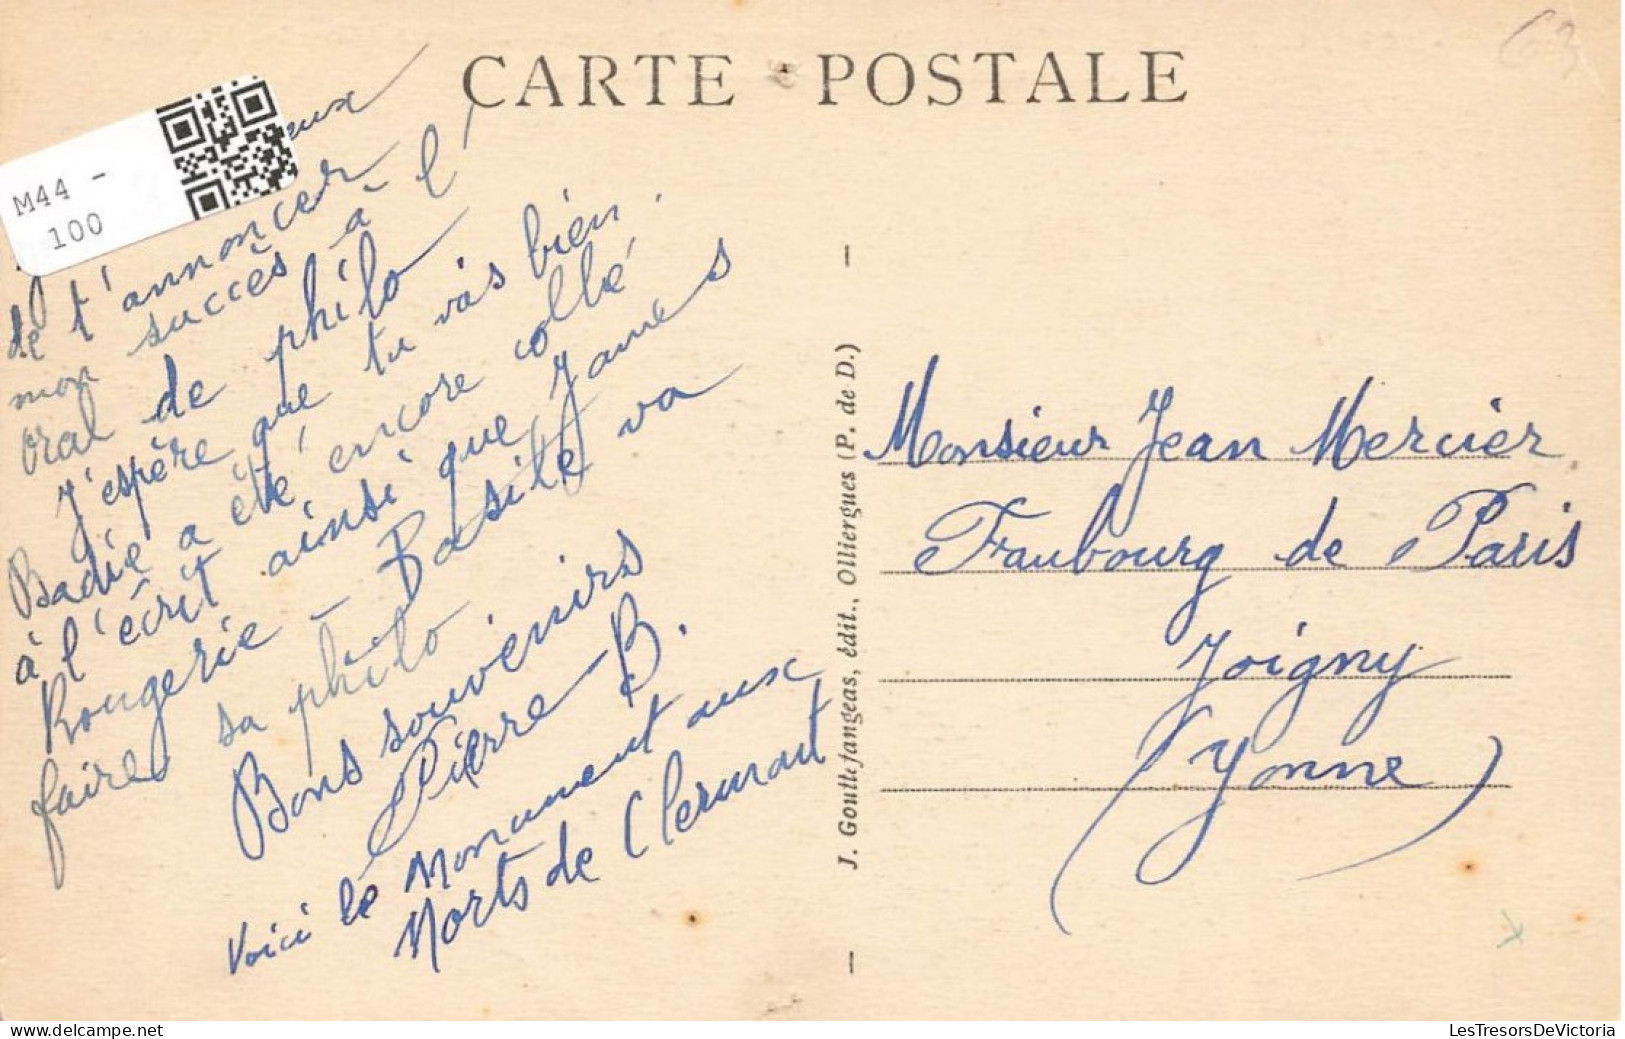 CARTE POSTALE
63
M44 -
100
eux
de t'annoncer
mon succès à l'
oral de philo
J'espère que tu vas bien.
Badie a été encore collé
à l'écrit ainsi que James
Rougerie - Basile va
faire sa philo
Bons souvenirs
Pierre B.
Voici le Monument aux
Morts de Clermont
J. Gouttefangeas, édit., Olliergues (P. de D.)
Monsieur Jean Mercier
Faubourg de Paris
Joigny
(Yonne)
LesTresorsDeVictoria